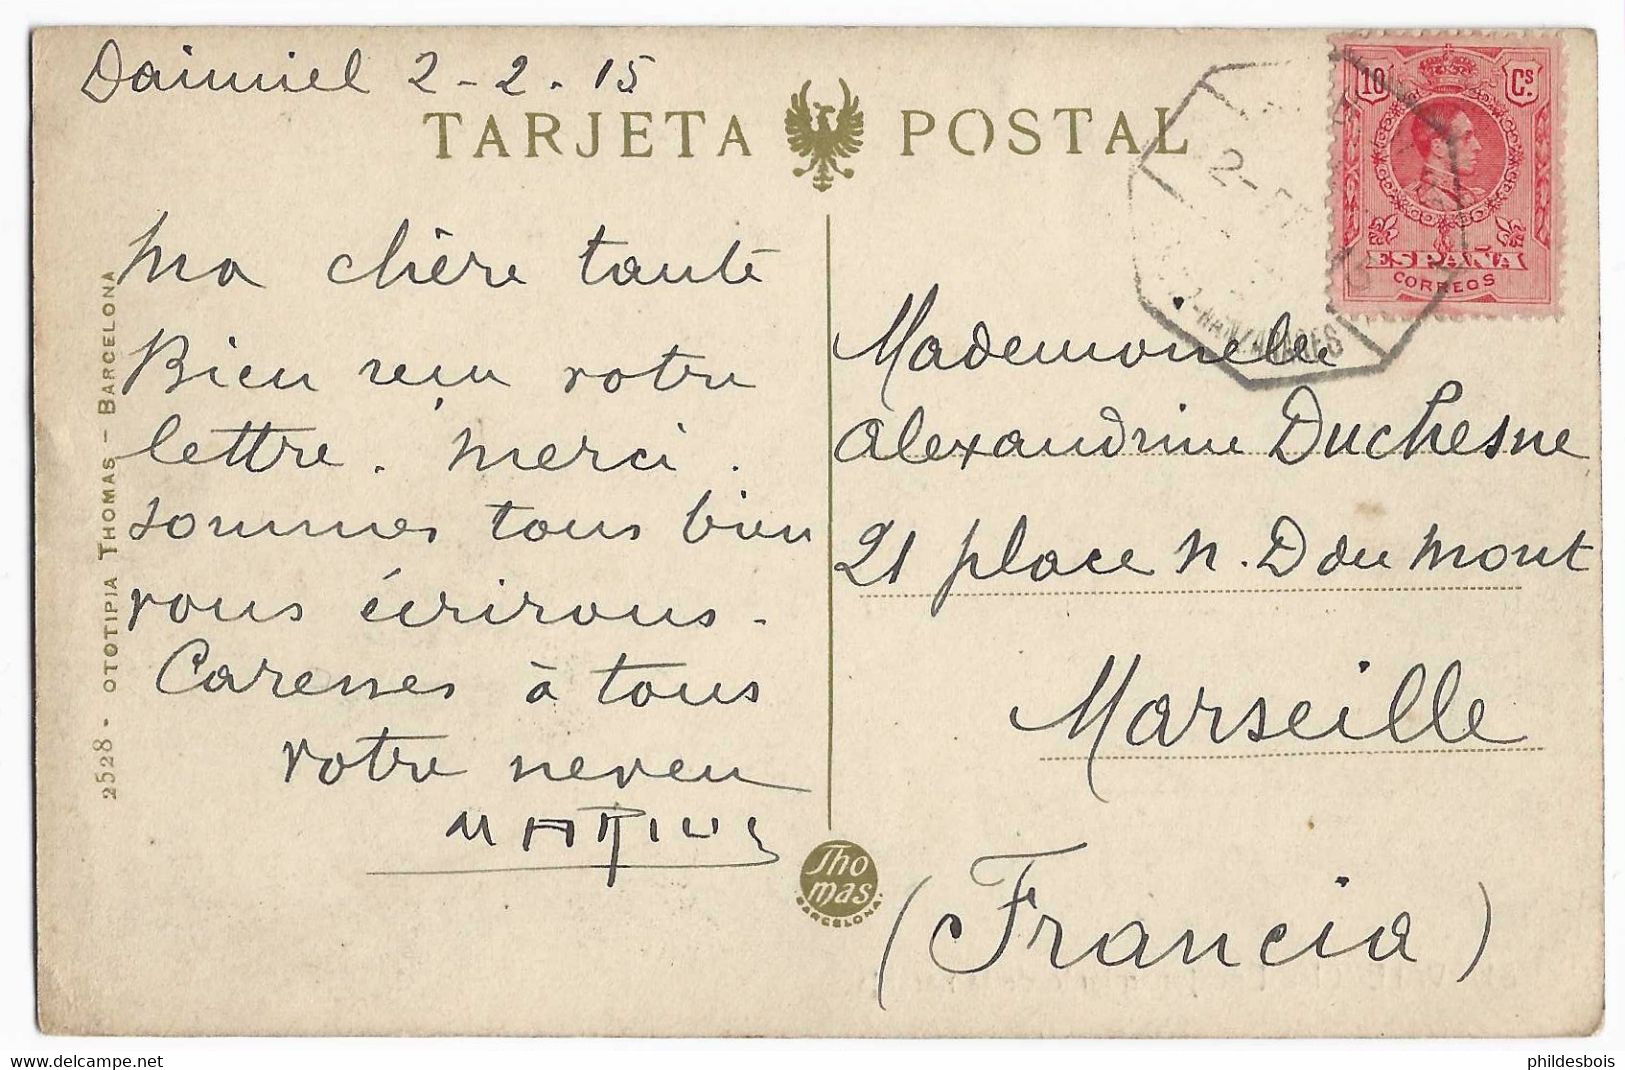 Daimiel 2-2.15
TARJETA POSTAL
10 Cs
ESPAÑA
CORREOS
2-F
-MANZANARES
Ma chère tante
Bien reçu votre
lettre. merci.
sommes tous bien
vous écrirons.
Caresses à tous
votre neveu
Mademoiselle
Alexandrine Duchesne
21 place N. D du mont
Marseille
(Francia)
2528 - OTOTIPIA THOMAS - BARCELONA
Thomas
BARCELONA.
phildesbois